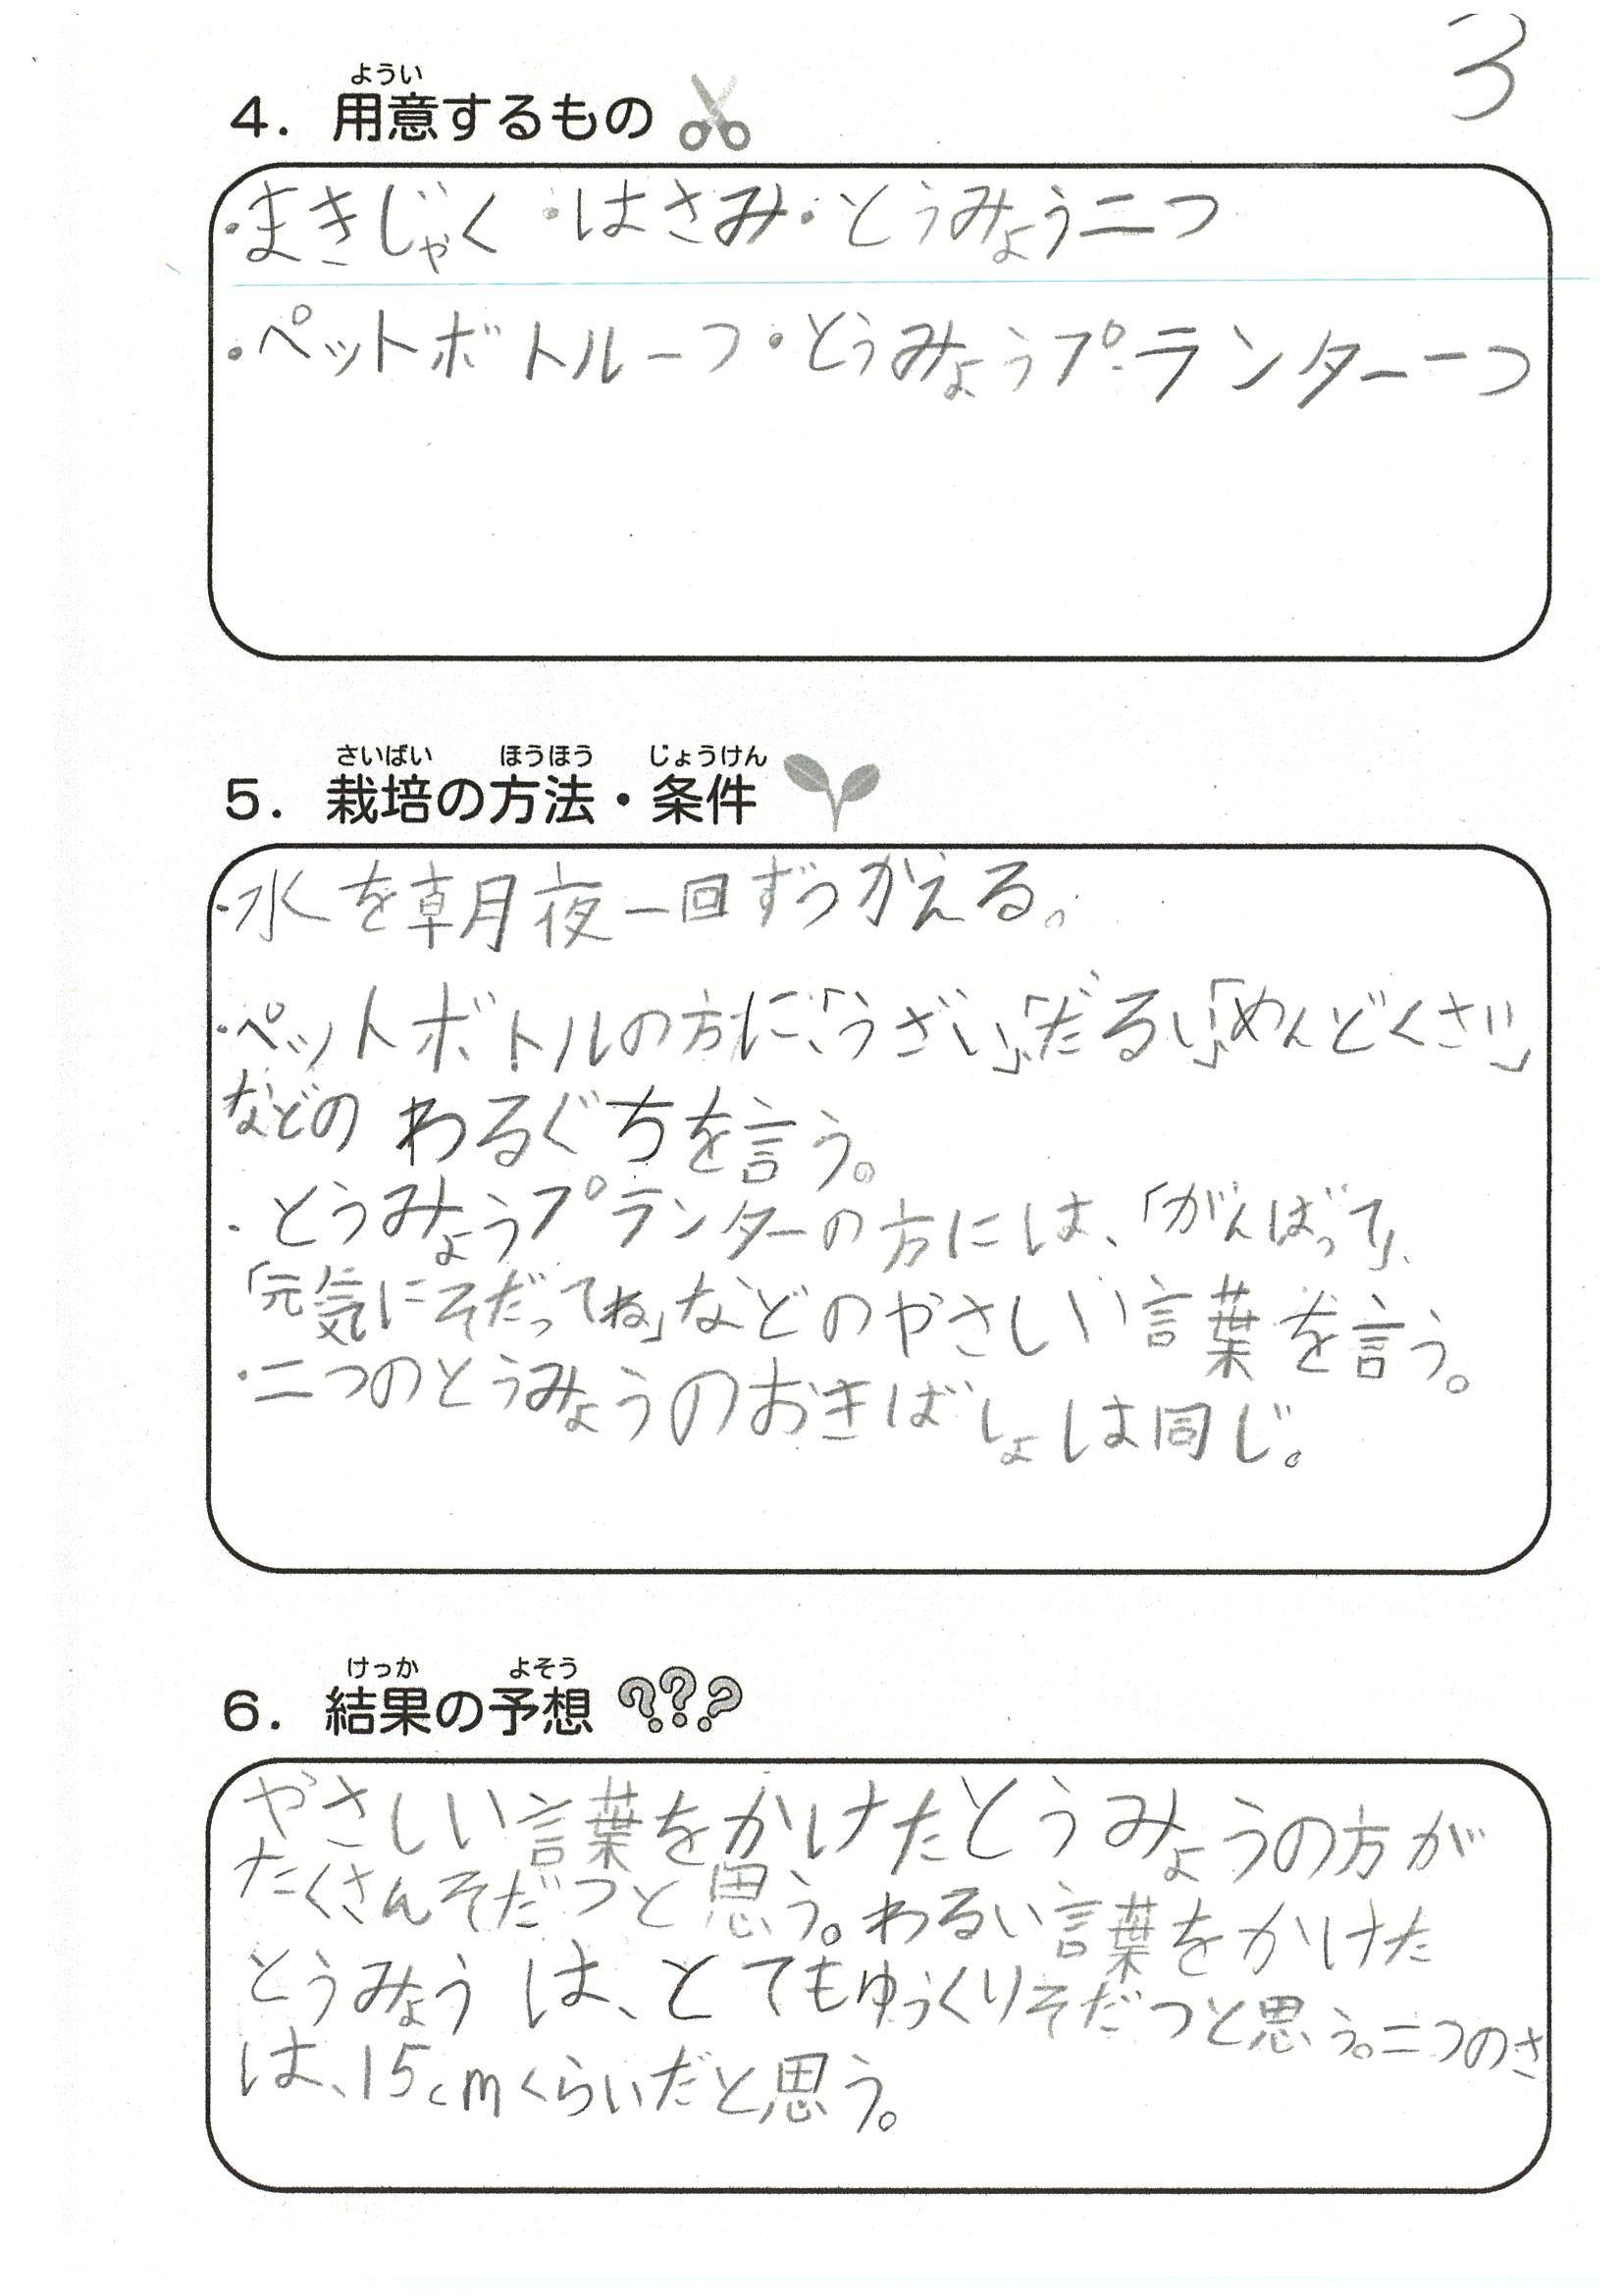 3
ようい
4. 用意するもの
・まきじゃく ・はさみ・とうみょう二つ
・ペットボトル一つ・とうみょうプランター一つ
さいばい ほうほう じょうけん
5. 栽培の方法・条件
・水を朝夜一回ずつかえる。
・ペットボトルの方に、「うざい」「だるい」「めんどくさい」
などの わるぐちを言う。
・とうみょうプランターの方には、「がんばって」、
「元気にそだってね」などのやさしい言葉を言う。
・二つのとうみょうのおきばしょは同じ。
けっか よそう
6. 結果の予想
やさしい言葉をかけたとうみょうの方が
たくさんそだつと思う。わるい言葉をかけた
とうみょうは、とてもゆっくりそだつと思う。二つのさ
は、15cmくらいだと思う。